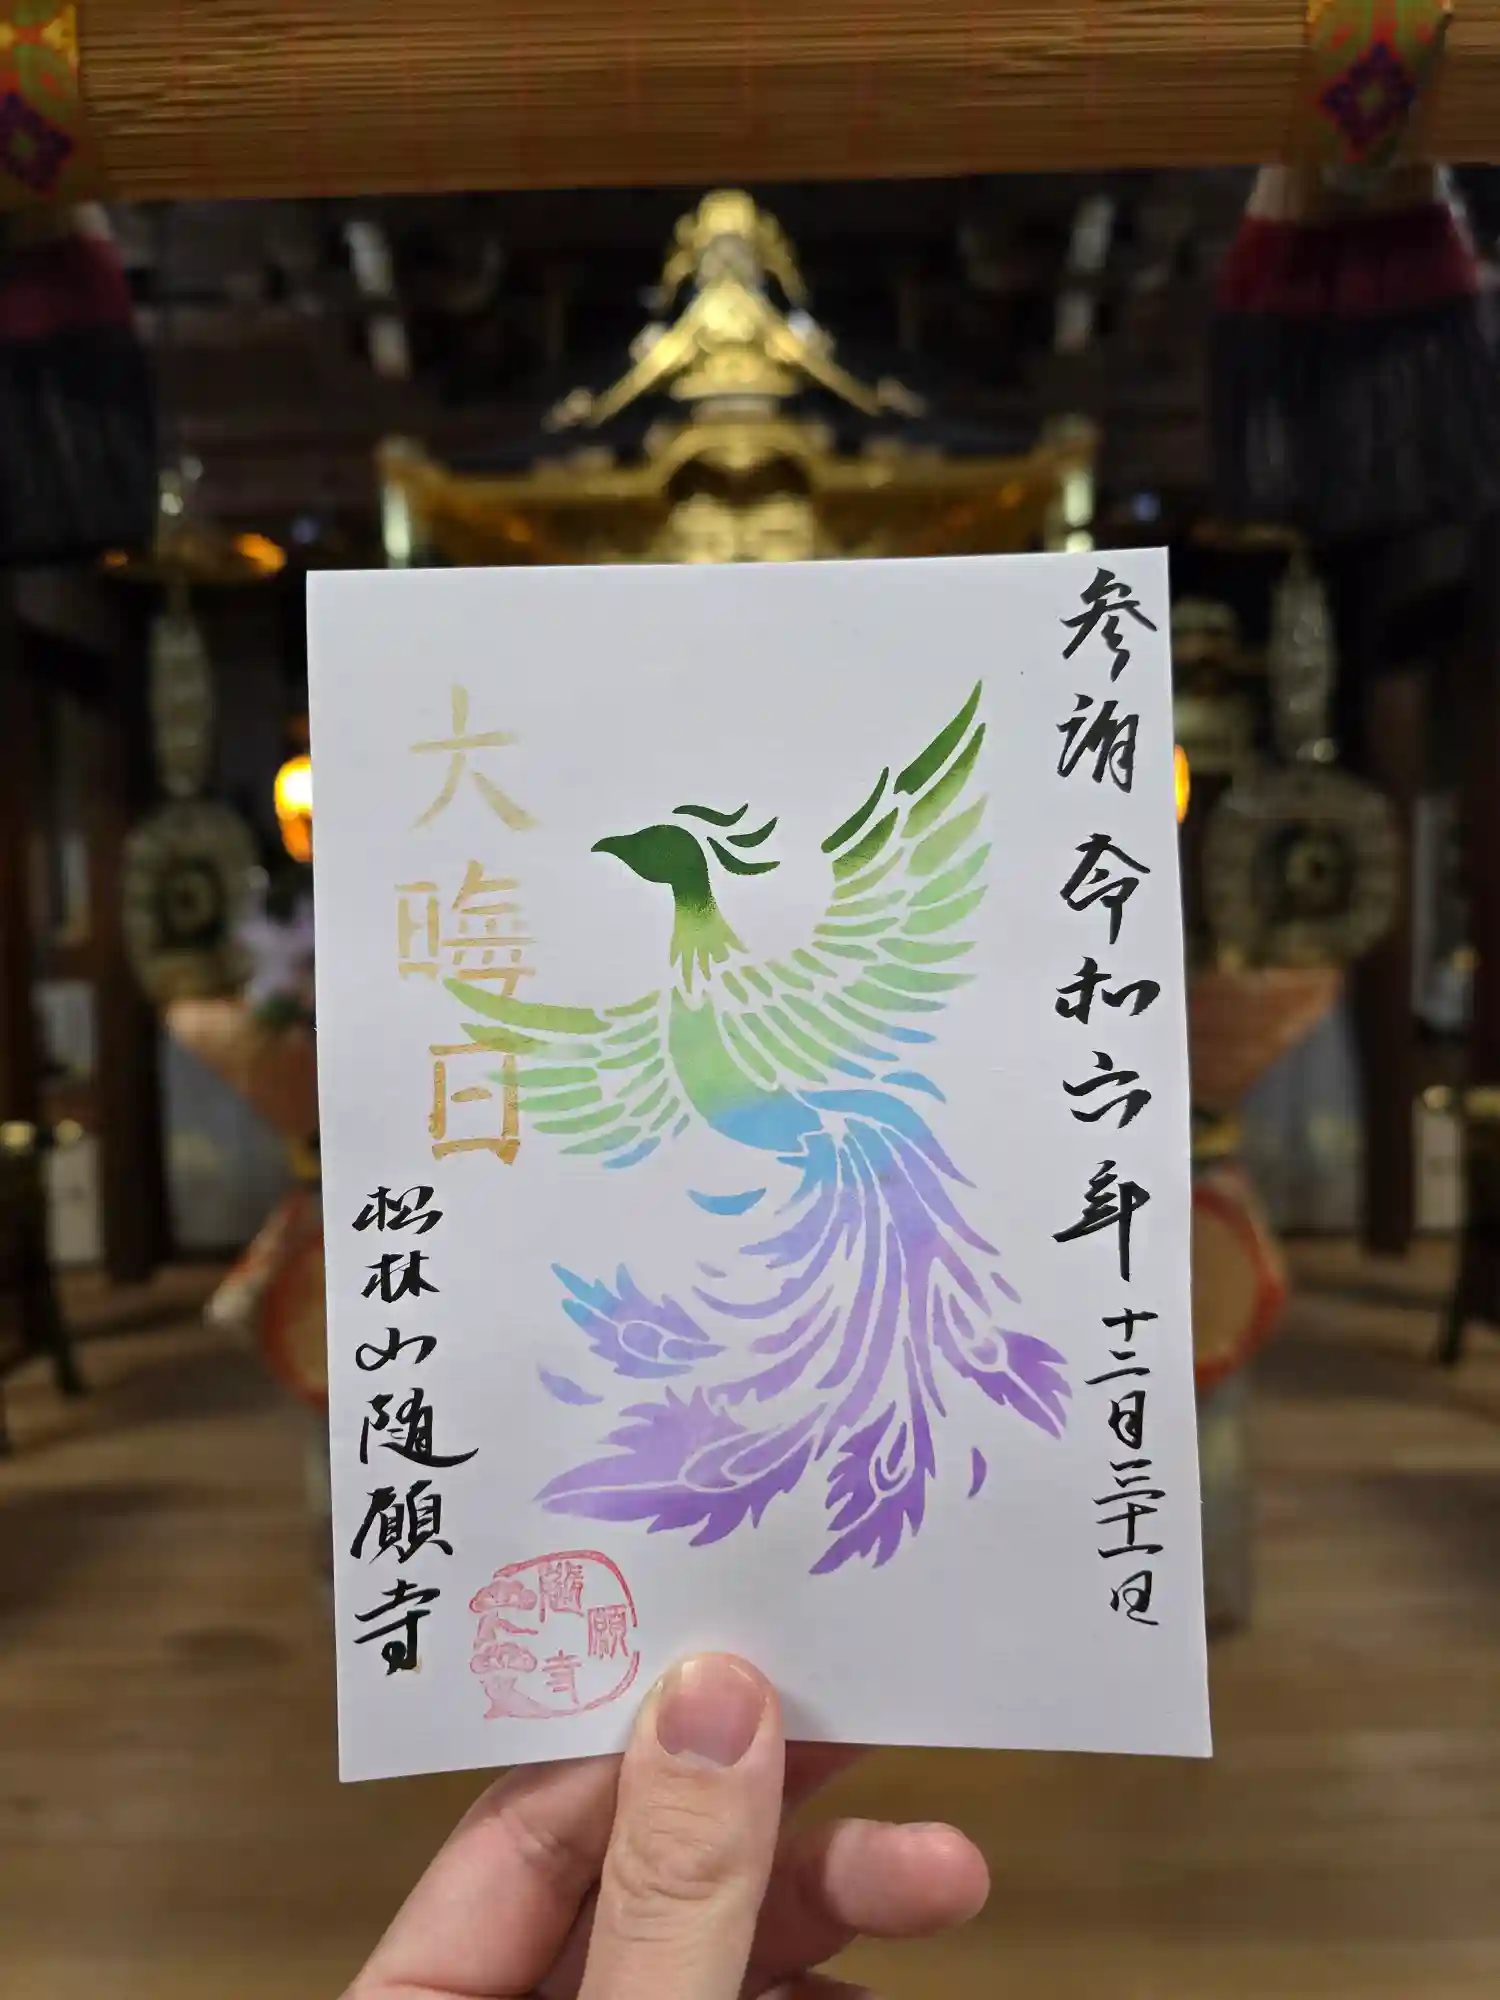 参詣 令和六年 十二月三十一日
大晦日
松林山随願寺
随
願
寺